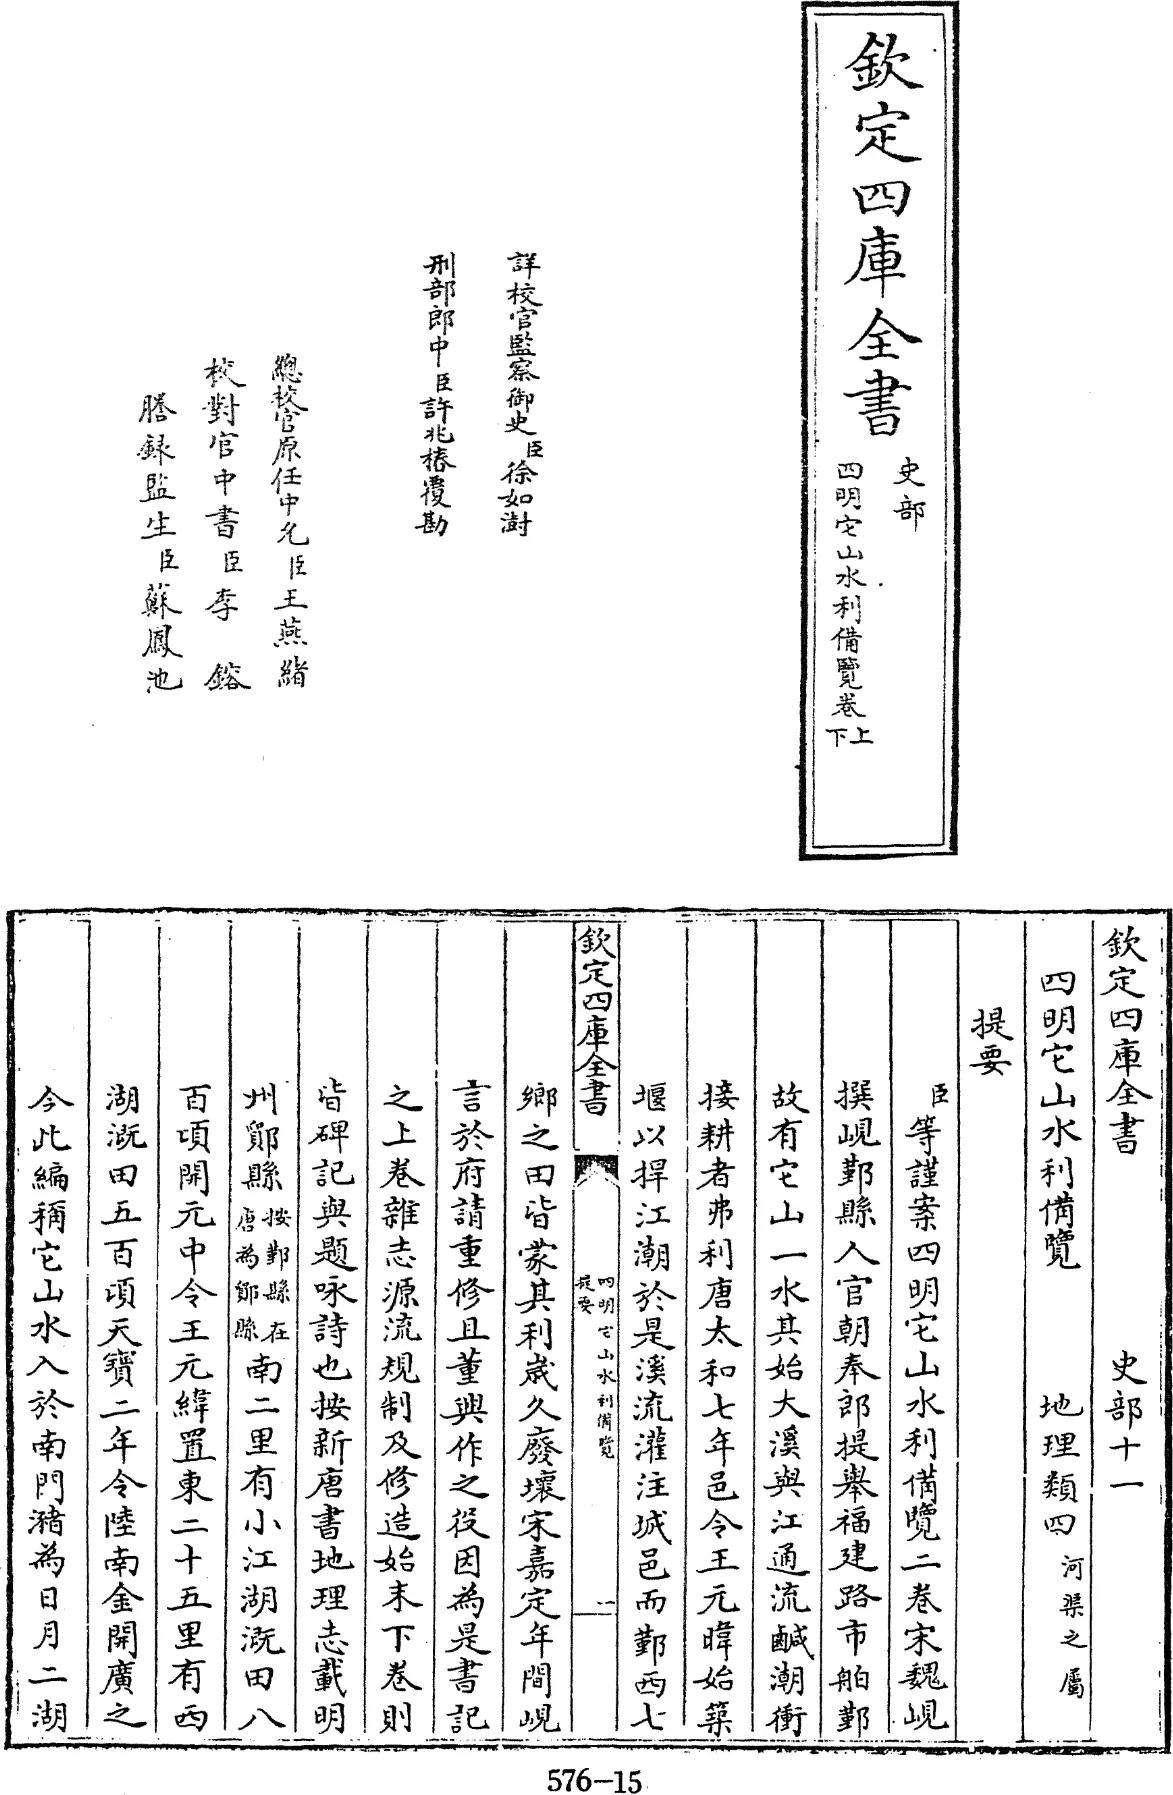 欽定四庫全書
史部
四明它山水利備覽卷上下
詳校官監察御史臣徐如澍
刑部郎中臣許兆椿覆勘
總校官原任中允臣王燕緒
校對官中書臣李鎔
謄錄監生臣蘇鳳池
欽定四庫全書　史部十一
四明它山水利備覽　地理類四河渠之屬
提要
臣等謹案四明它山水利備覽二卷宋魏峴
撰峴鄞縣人官朝奉郎提舉福建路市舶鄞
故有它山一水其始大溪與江通流鹹潮衝
接耕者弗利唐太和七年邑令王元暐始築
堰以捍江潮於是溪流灌注城邑而鄞西七
欽定四庫全書　四明它山水利備覽提要　一
鄉之田皆蒙其利歲久廢壞宋嘉定年間峴
言於府請重修且董興作之役因為是書記
之上卷雜志源流規制及修造始末下卷則
皆碑記與題咏詩也按新唐書地理志載明
州鄮縣按鄞縣在唐為鄮縣南二里有小江湖溉田八
百頃開元中令王元緯置東二十五里有西
湖溉田五百頃天寶二年令陸南金開廣之
今此編稱它山水入於南門瀦為日月二湖
576-15